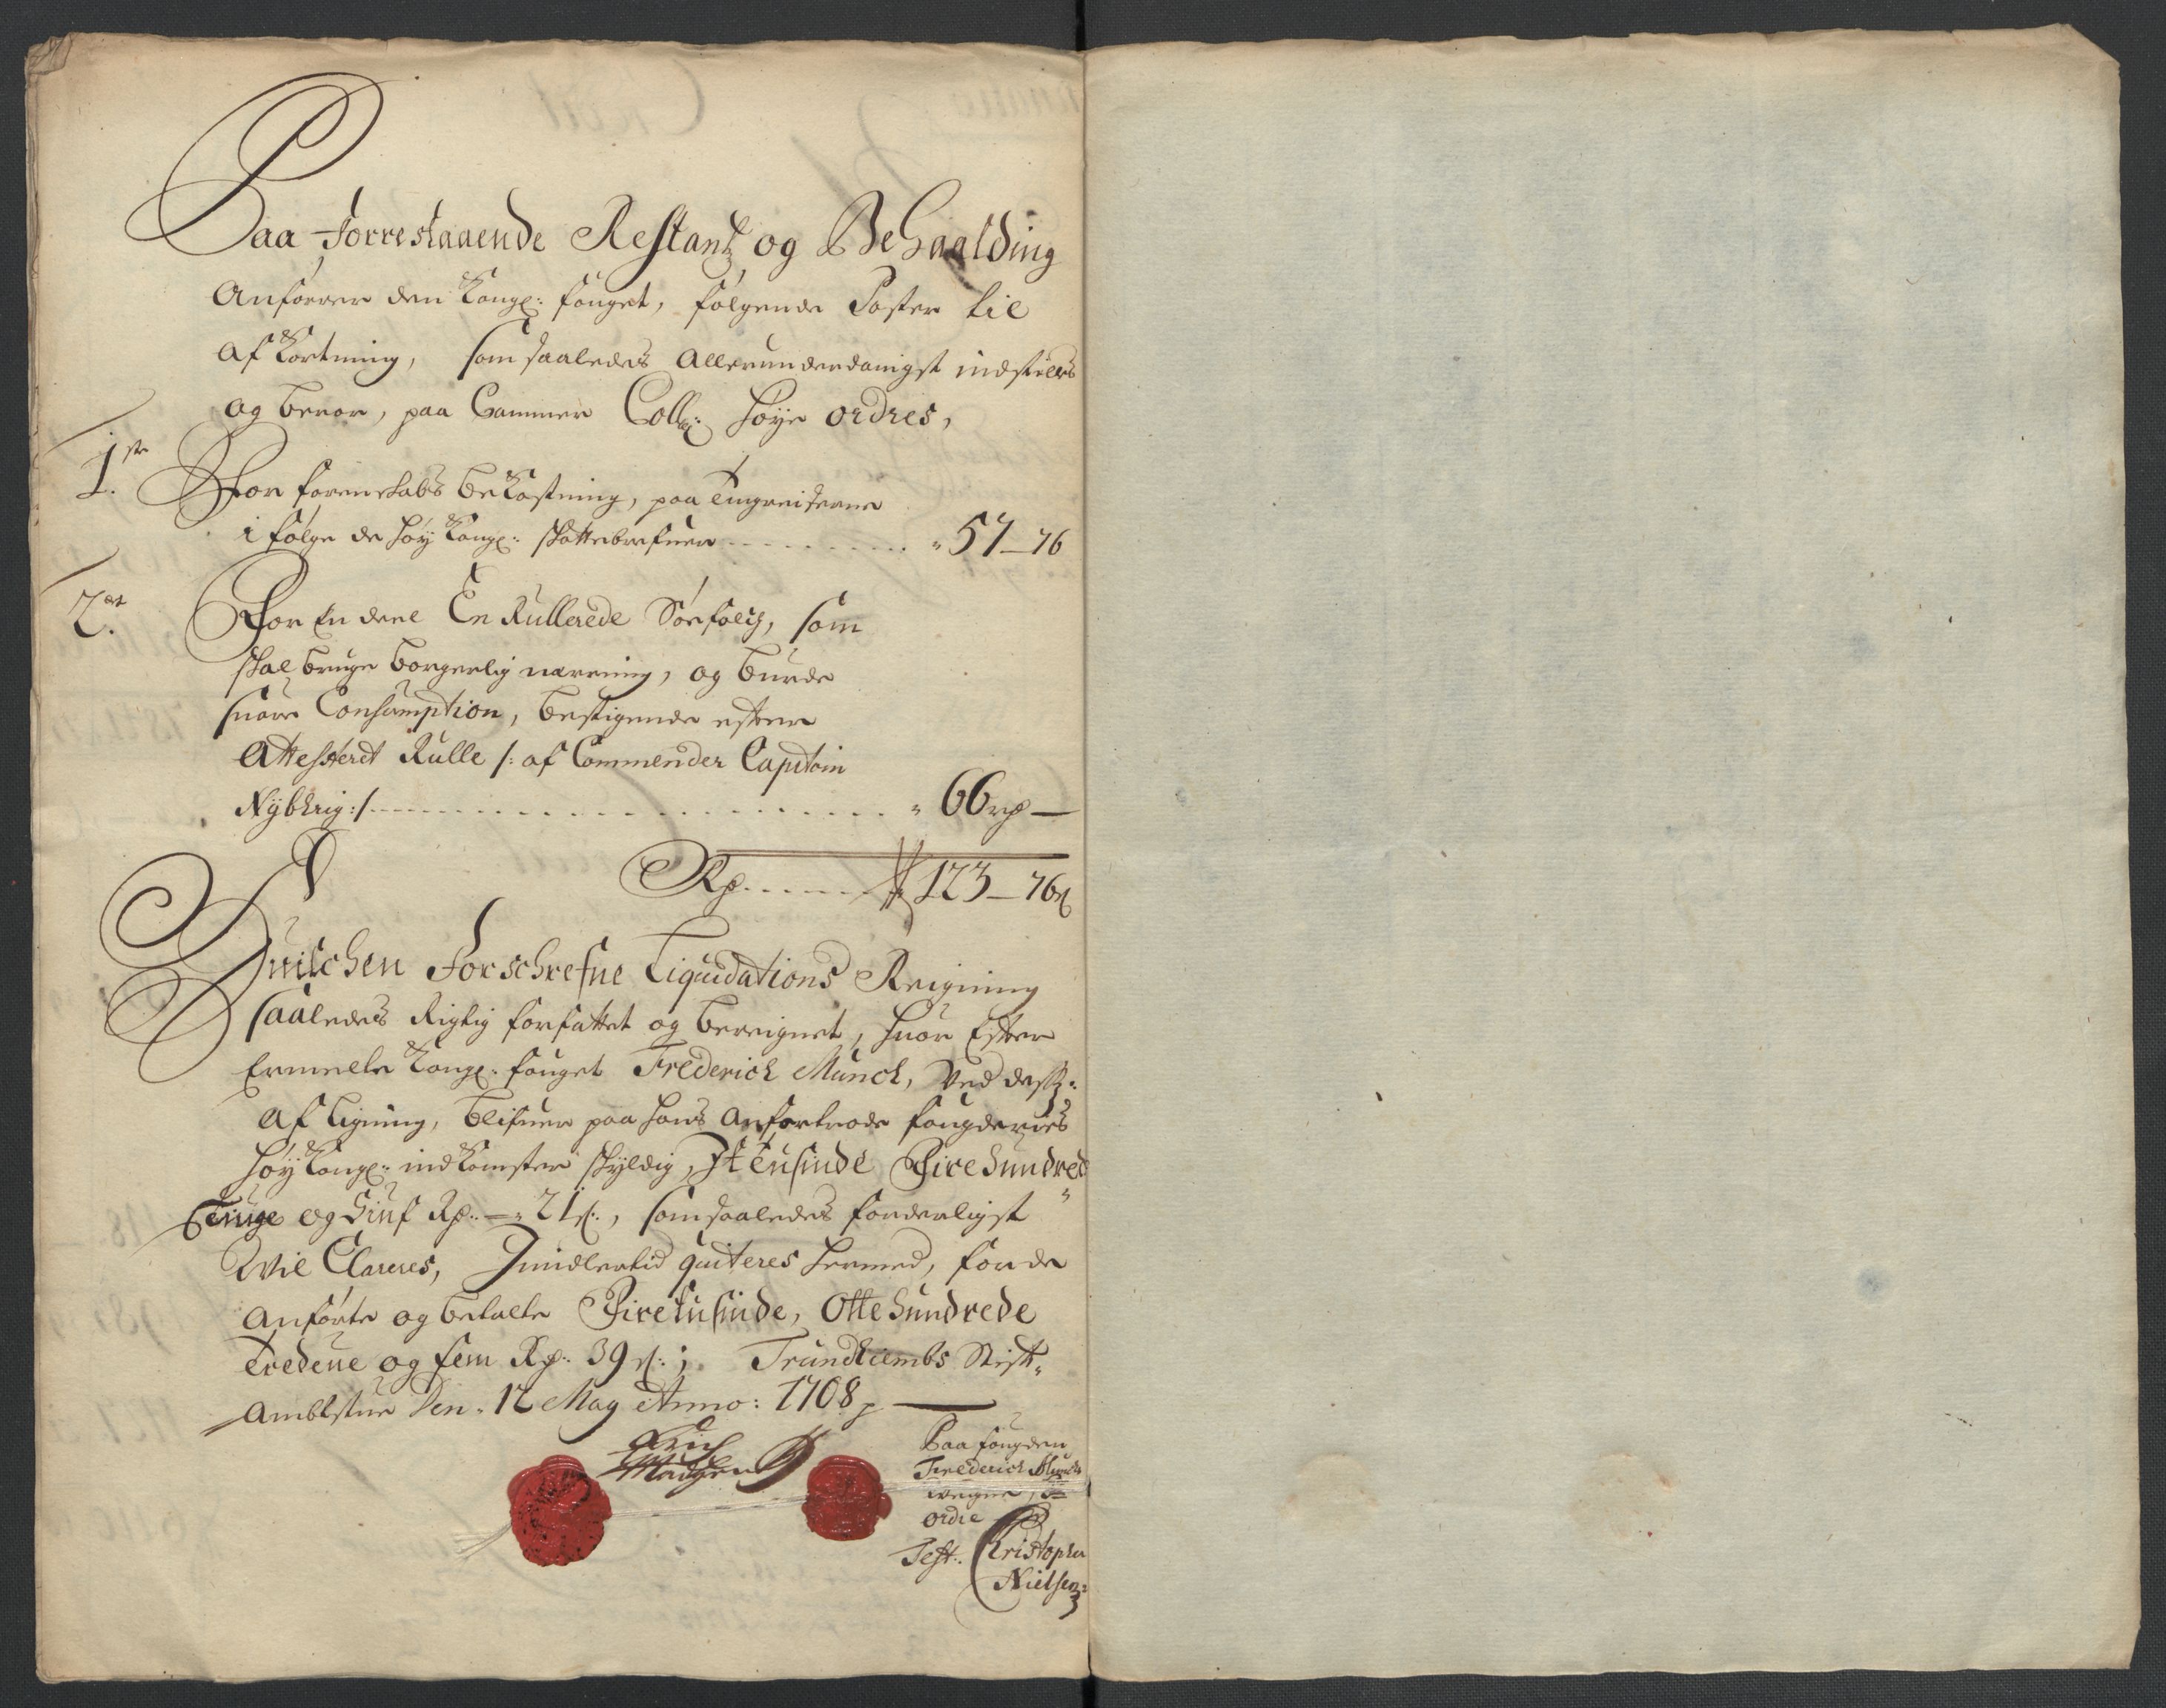 Paa Forrestaaende Restantz og Behaalding
Anfører den Kongl: fouget, følgende Poster til
Afkortning, som saaledes Allerunderdanigst indstilles
og beroer, paa Cammer Coll: høye ordres,
1ste For forenskabs bekostning, paa
i følge de høy Kongl: skattebrefuer - - - - - " 57 - 76
2et For En deel En Rullerede Søefolch, som
skal bruge borgerlig næring, og burde
suare Consumption, bestigende efter
Attesteret Rulle /: af Commender Capitain
:/ - - - - - - " 66 rd —
Rd. - - - - 123 - 76 s
Huilchen Forschrefne Liquidations Reigning
saaledes Rigtig forfattet og bereignet, huor Efter
Ermelte Kongl: fouget Frederich Munch, Ved dessz:
Afligning, blifuer paa hans Anfortrode fougderies
høy Kongl: indkomster skyldig, Et tusinde Fire hundred
Tiuge og Siuf Rd: — " 21 s:, som saaledes forderligst
Vil Clareres, Imidlertid quiteres hermed, for de
Anførte og betalte Firetusinde, Otte hundrede
Tredeue og fem Rd: 39 s: ; Trundhiembs Stift-
Ambtstue Den. 12 May Anno: 1708
Paa fougden
Frederich Munchs
wegne,
ordre
Test: Christopher
Nielsen